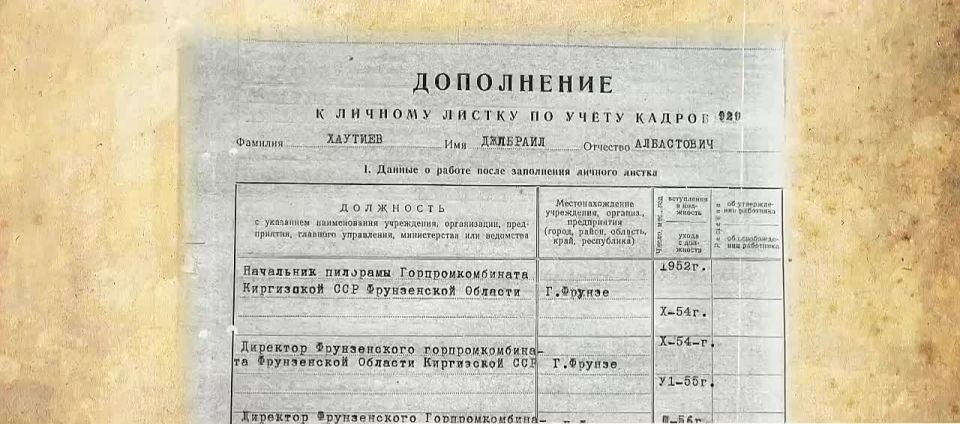 ДОПОЛНЕНИЕ
К ЛИЧНОМУ ЛИСТКУ ПО УЧЕТУ КАДРОВ 929
Фамилия ХАУТИЕВ Имя ДЖЕБРАИЛ Отчество АЛБАСТОВИЧ
1. Данные о работе после заполнения личного листка
ДОЛЖНОСТЬ
с указанием наименования учреждения, организации, пред-
приятия, главного управления, министерства или ведомства
Местонахождение
учреждения, организ.,
предприятия
(город, район, область,
край, республика)
Число, мес., год
вступления
в дол-
жность
ухода
с дол-
жности
об утвержде-
нии работника
об освобожде-
нии работника
Начальник пилорамы Горпромкомбината
Киргизской ССР Фрунзенской Области
Г.Фрунзе
1952г.
Х-54г.
Директор Фрунзенского горпромкомбина-
та Фрунзенской Области Киргизской ССР
Г.Фрунзе
Х-54-г.
У1-55г.
Директор Фрунзенского Горпромкомбина-
Ш-56г.